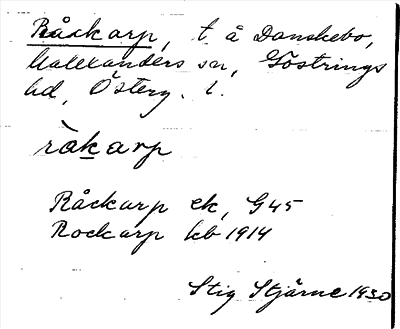 Råckarp, t å Danskebo,
Kullerstads sn, Göstrings
hd, Österg. l.
ràkarp
Råckarp ek, G45
Rockarp kb 1914
Stig Stjärne 1930